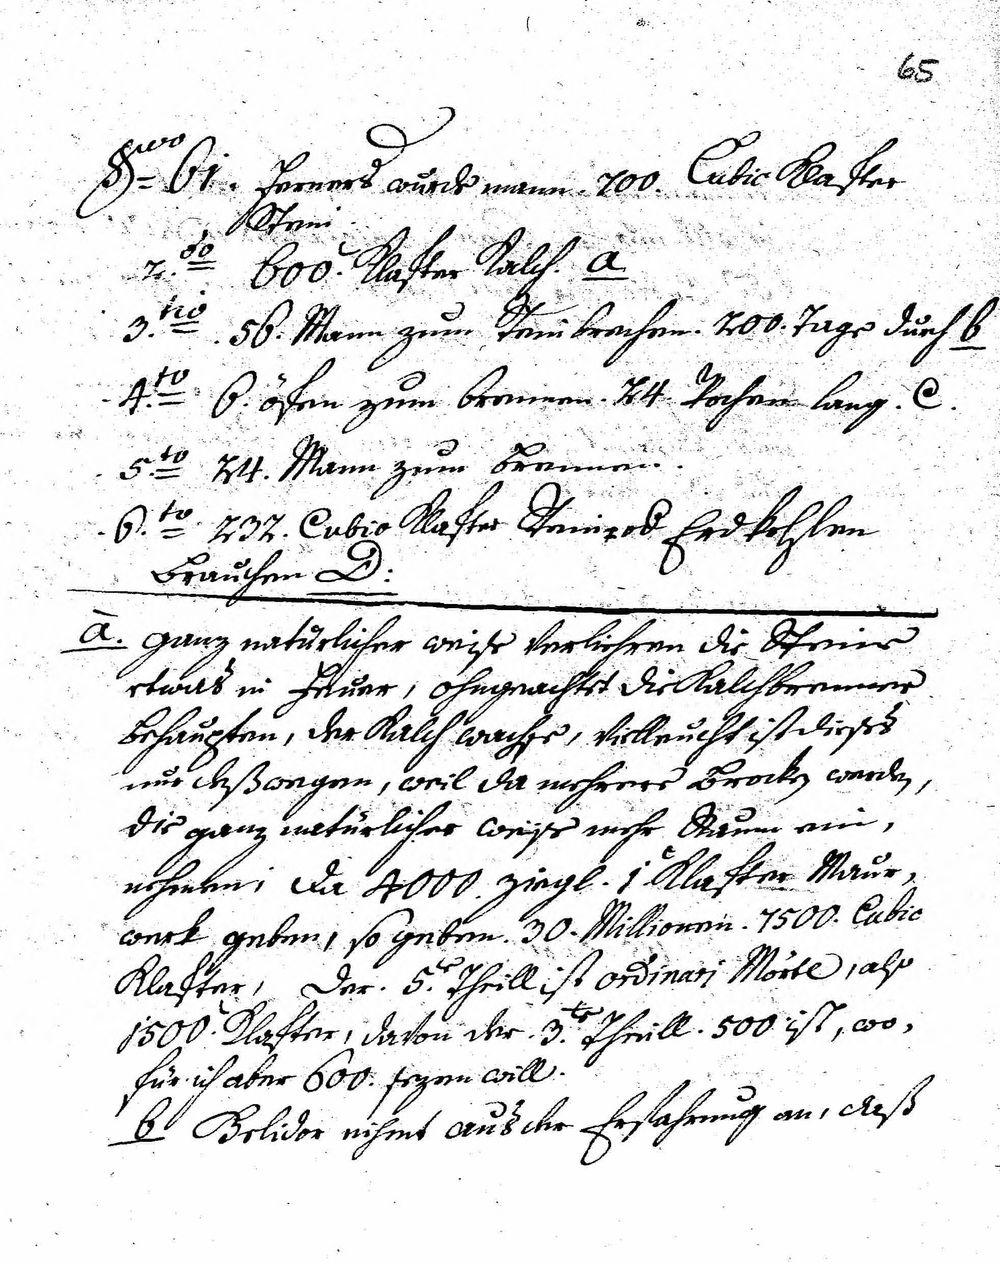 65
§vo 61. Ferners wurde mann. 700. Cubic Klafter
Stein
2.do 600. Klafter Kalch. a
3.tio 56. Mann zum Steinbrechen. 200. Tage durch b
4.to 6. öfen zum brennen. 24. Wochen lang. C.
5.to 24. Mann zum brennen.
6.to 232. Cubic Klafter Erdkohlen
brauchen D:
a. ganz natürlicher weise verliehren die Steine
etwas in Feuer, ohngeachtet die Kalchbrenner
behaupten, der Kalch wachse, villeucht ist dieses
nur deßwegen, weil da mehrere Brocken werden,
die ganz natürlicher weise mehr Raum ein,
nehmen; Da 4000. ziegl. 1 Klafter Maur,
werk geben, so geben. 30. Millionen. 7500. Cubic
Klafter, Der. 5.te Theill ist ordinari Mörtl, also
1500. Klafter, davon der. 3.te Theill. 500 ist, wo,
für ich aber 600. sezen will.
b Belidor nihmt aus der Erfahrung an, daß